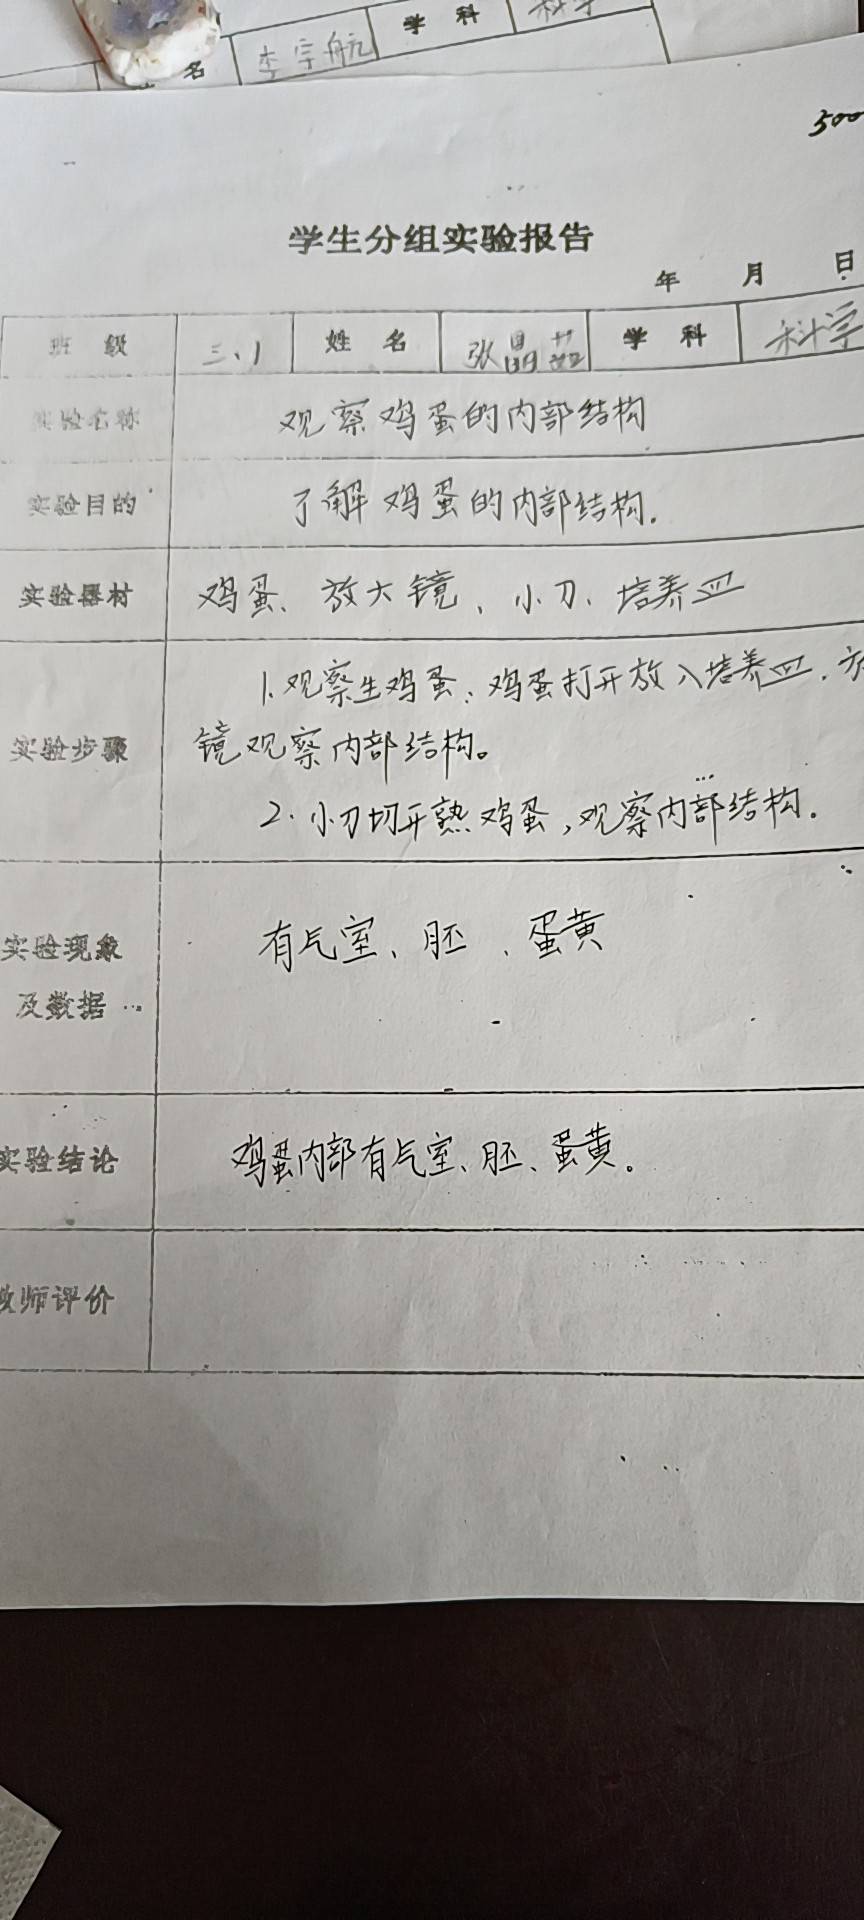 名 李宇航 学科 科学
500
学生分组实验报告
年 月 日
班级 三、1 姓名 张 学科 科学
实验名称 观察鸡蛋的内部结构
实验目的 了解鸡蛋的内部结构.
实验器材 鸡蛋、放大镜、小刀、培养皿
1.观察生鸡蛋:鸡蛋打开放入培养皿.放
实验步骤 镜观察内部结构。
2.小刀切开熟鸡蛋,观察内部结构.
实验现象 有气室、胚、蛋黄
及数据
实验结论 鸡蛋内部有气室、胚、蛋黄。
教师评价